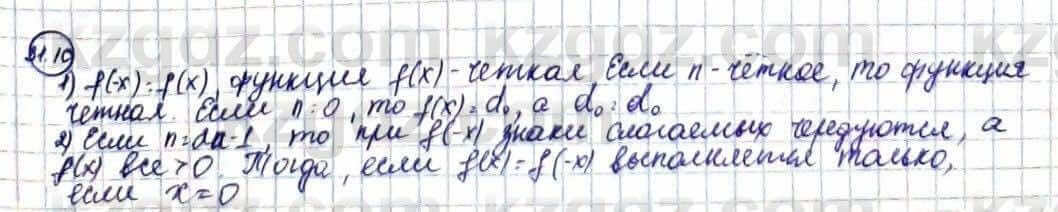 31.10
1) f(-x) = f(x), функция f(x) - четная. Если n - чётное, то функция
четная. Если n = 0, то f(x) = d₀, а d₀ = d₀
2) Если n = 2n-1, то при f(-x) знаки слагаемых чередуются, а
f(x) все > 0. Тогда, если f(x) = f(-x) выполняется только,
если x = 0